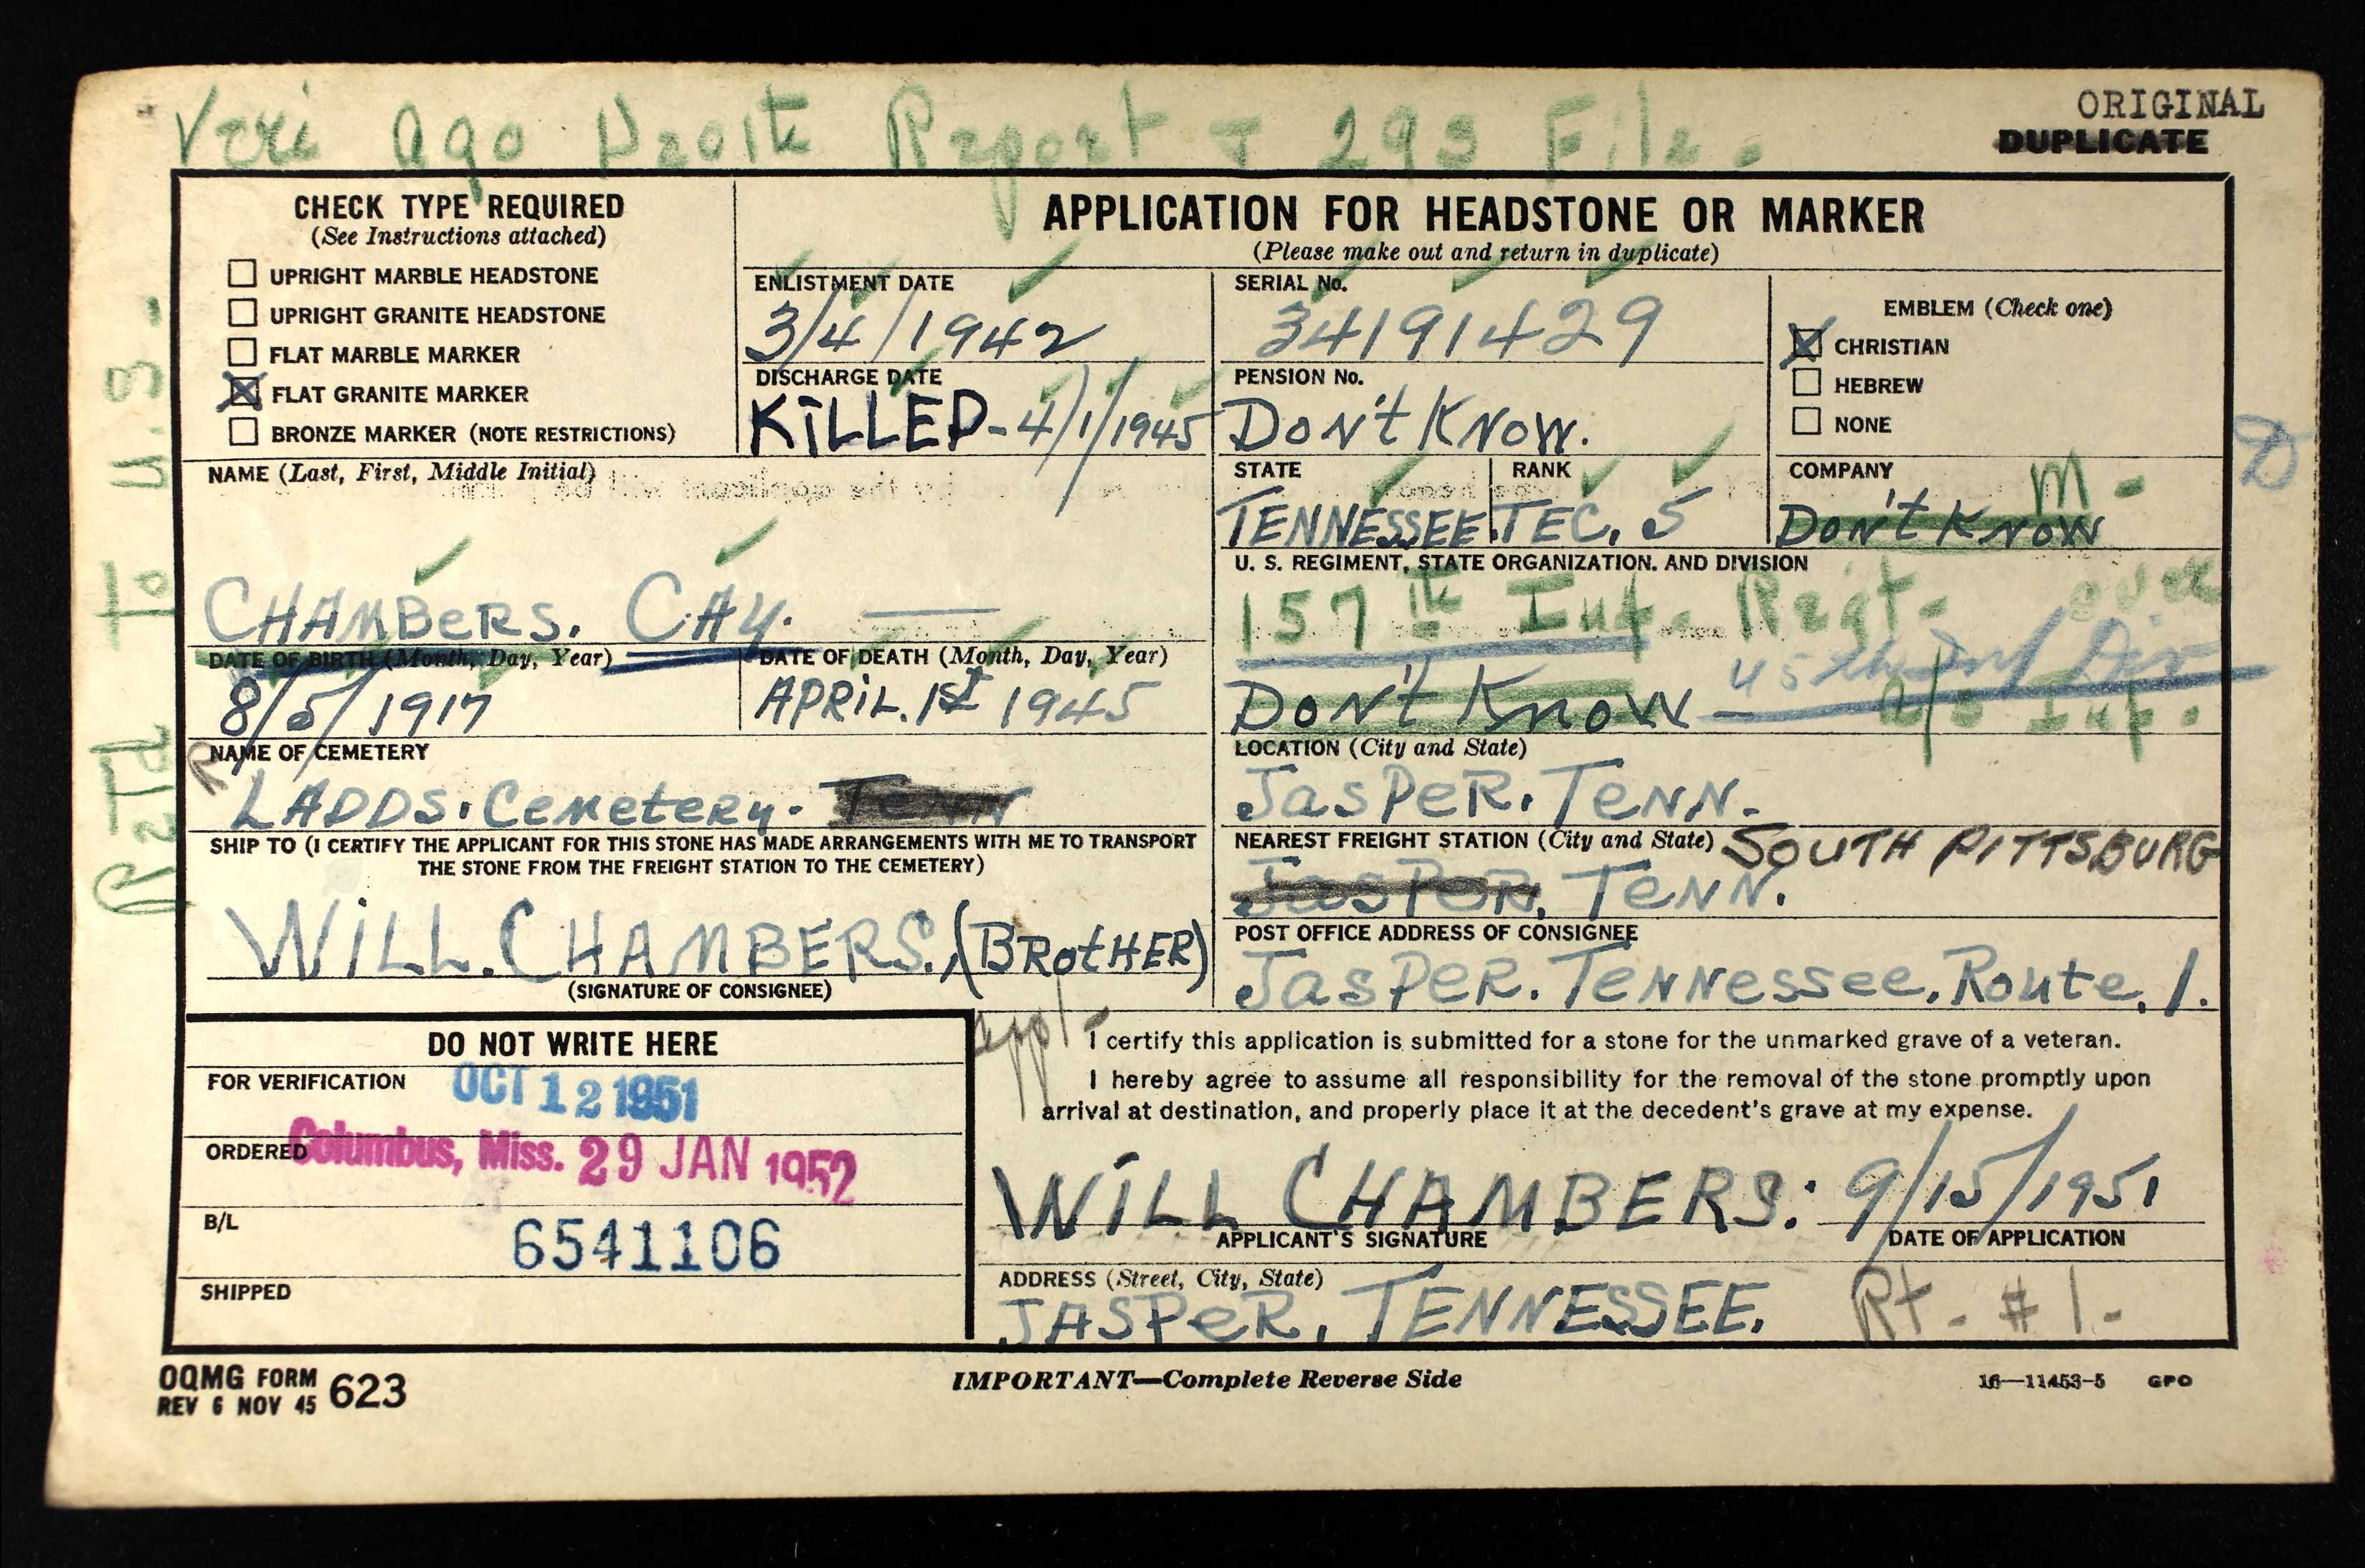 Veri Ago Death Report + 293 File.
ORIGINAL
DUPLICATE
Retd To U.S.
CHECK TYPE REQUIRED
(See Instructions attached)
UPRIGHT MARBLE HEADSTONE
UPRIGHT GRANITE HEADSTONE
FLAT MARBLE MARKER
X FLAT GRANITE MARKER
BRONZE MARKER (NOTE RESTRICTIONS)
APPLICATION FOR HEADSTONE OR MARKER
(Please make out and return in duplicate)
ENLISTMENT DATE
3/4/1942
SERIAL No.
34191429
EMBLEM (Check one)
X CHRISTIAN
HEBREW
NONE
DISCHARGE DATE
KiLLED-4/1/1945
PENSION No.
DoN't KNoW.
D
NAME (Last, First, Middle Initial)
CHAMBeRS. CAY. —
STATE
TENNESSEE.
RANK
TEC. 5
COMPANY
M-
DoN't KNoW
U. S. REGIMENT, STATE ORGANIZATION, AND DIVISION
157th Inf. Regt. over
45th Inf Div
DoN't KnoW — Inf.
DATE OF BIRTH (Month, Day, Year)
8/5/1917
DATE OF DEATH (Month, Day, Year)
APRiL. 1st 1945
NAME OF CEMETERY
R
LADDS. Cemetery. Tenn
LOCATION (City and State)
JasPeR. TeNN.
SHIP TO (I CERTIFY THE APPLICANT FOR THIS STONE HAS MADE ARRANGEMENTS WITH ME TO TRANSPORT
THE STONE FROM THE FREIGHT STATION TO THE CEMETERY)
NEAREST FREIGHT STATION (City and State) SOUTH PITTSBURG
JasPeR, TeNN.
WiLL. CHAMBERS. (BRotHER)
(SIGNATURE OF CONSIGNEE)
POST OFFICE ADDRESS OF CONSIGNEE
JasPeR. TeNNessee. Route. 1.
DO NOT WRITE HERE
FOR VERIFICATION OCT 12 1951
ORDERED Columbus, Miss. 29 JAN 1952
B/L 6541106
SHIPPED
appl-
I certify this application is submitted for a stone for the unmarked grave of a veteran.
I hereby agree to assume all responsibility for the removal of the stone promptly upon
arrival at destination, and properly place it at the decedent's grave at my expense.
WiLL CHAMBERS: 9/15/1951
APPLICANT'S SIGNATURE DATE OF APPLICATION
ADDRESS (Street, City, State)
JASPeR, TENNESSEE. Rt. #1.
OQMG FORM 623
REV 6 NOV 45
IMPORTANT—Complete Reverse Side
16—11453-5 GPO